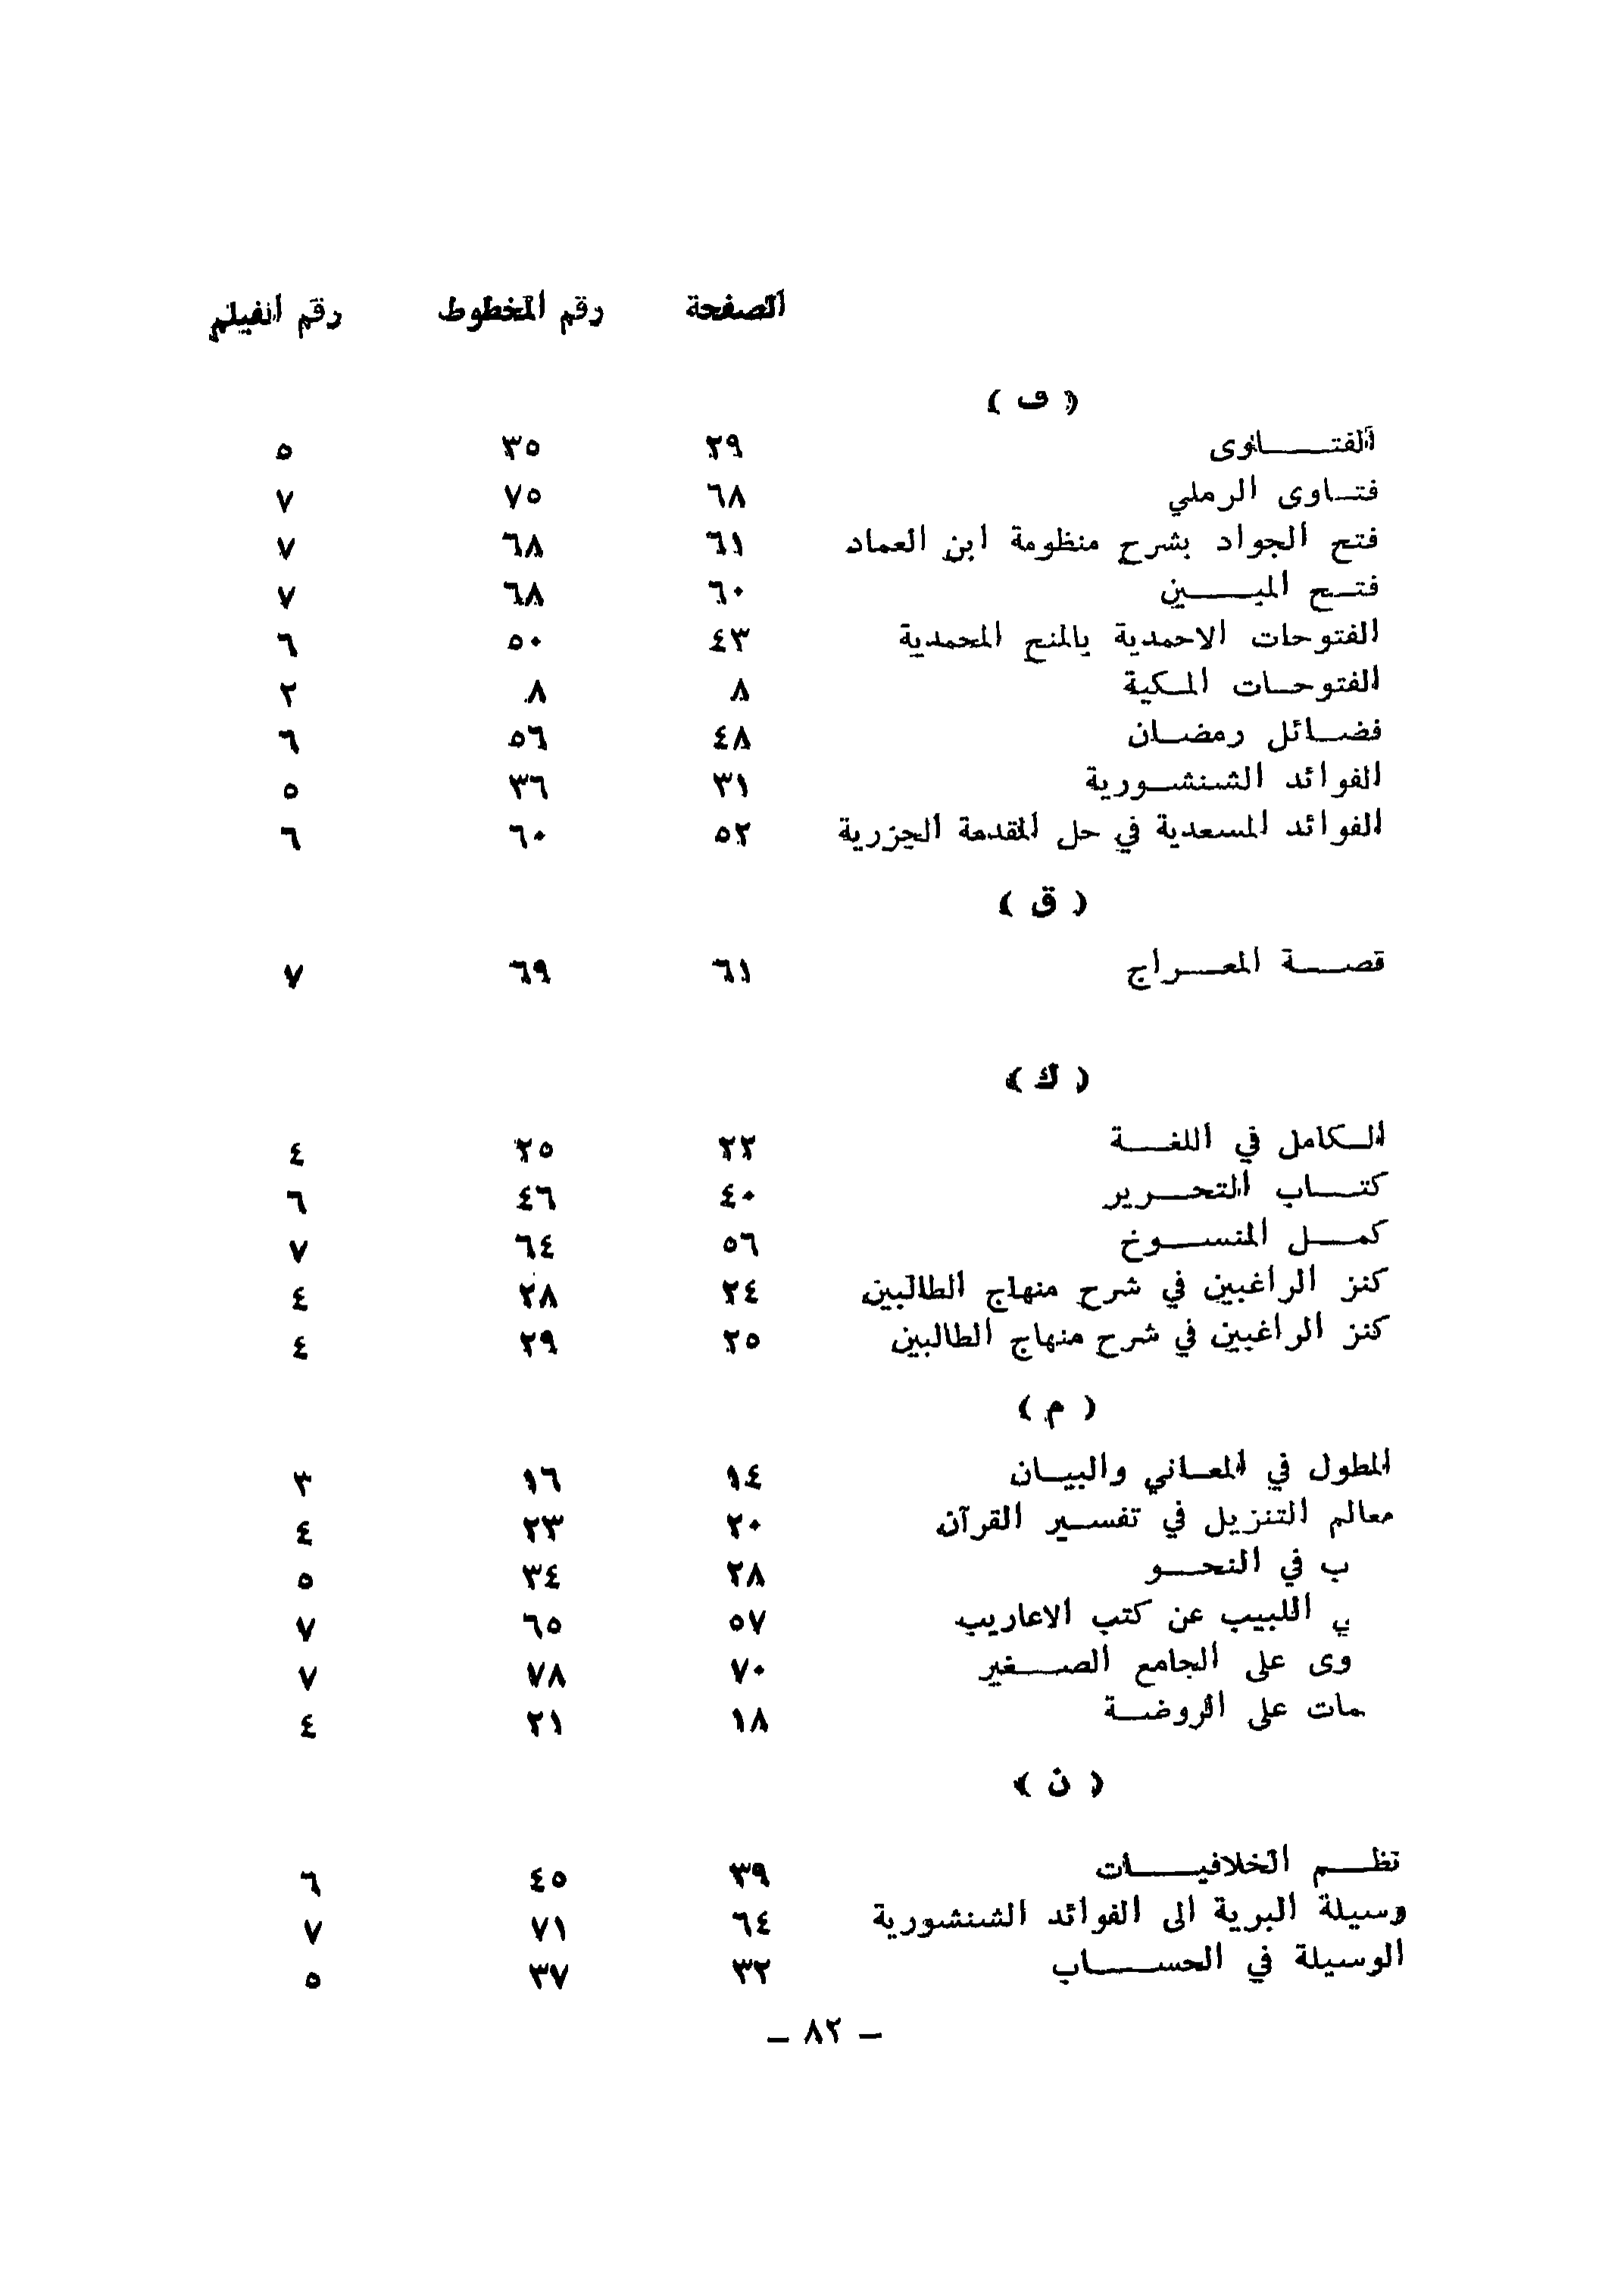 الصفحة رقم المخطوط رقم الفيلم
( ف )
الفتاوى ٢٩ ٣٥ ٥
فتاوى الرملي ٦٨ ٧٥ ٧
فتح الجواد بشرح منظومة ابن العماد ٦١ ٦٨ ٧
فتح المبين ٦٠ ٦٨ ٧
الفتوحات الاحمدية بالمنح المحمدية ٤٣ ٥٠ ٦
الفتوحات المكية ٨ ٨ ٢
فضائل رمضان ٤٨ ٥٦ ٦
الفوائد الشنشورية ٣١ ٣٦ ٥
الفوائد المسعدية في حل المقدمة الجزرية ٥٢ ٦٠ ٦
( ق )
قصة المعراج ٦١ ٦٩ ٧
( ك )
الكامل في اللغة ٢٢ ٢٥ ٤
كتاب التحرير ٤٠ ٤٦ ٦
كمل المنسوخ ٥٦ ٦٤ ٧
كنز الراغبين في شرح منهاج الطالبين ٢٤ ٢٨ ٤
كنز الراغبين في شرح منهاج الطالبين ٢٥ ٢٩ ٤
( م )
المطول في المعاني والبيان ١٤ ١٦ ٣
معالم التنزيل في تفسير القرآن ٢٠ ٢٣ ٤
ب في النحو ٢٨ ٣٤ ٥
ي اللبيب عن كتب الاعاريب ٥٧ ٦٥ ٧
وى على الجامع الصغير ٧٠ ٧٨ ٧
مات على الروضة ١٨ ٢١ ٤
( ن )
نظم الخلافيات ٣٩ ٤٥ ٦
وسيلة البرية الى الفوائد الشنشورية ٦٤ ٧١ ٧
الوسيلة في الحساب ٣٢ ٣٧ ٥
– ٨٢ –